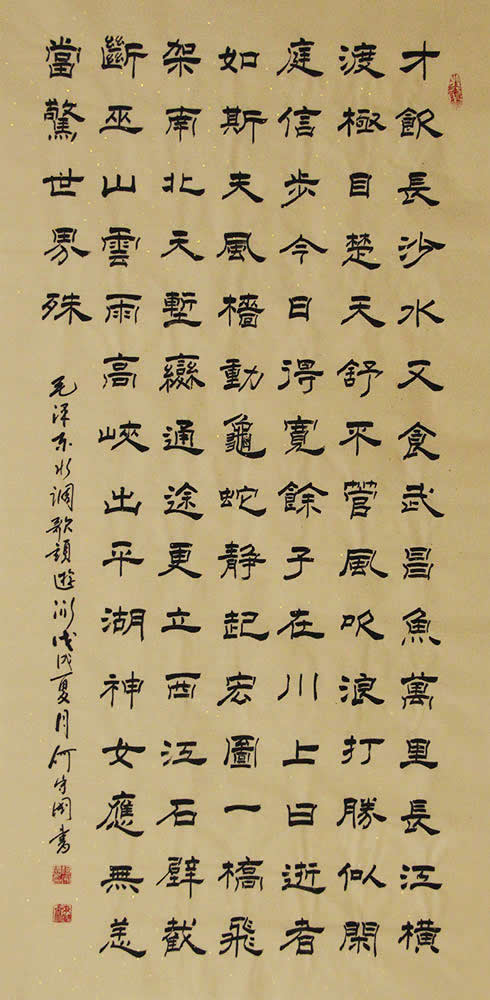 才飲長沙水又食武昌魚萬里長江橫
渡極目楚天舒不管風吹浪打勝似閑
庭信步今日得寬餘子在川上曰逝者
如斯夫風檣動龜蛇靜起宏圖一橋飛
架南北天塹變通途更立西江石壁截
斷巫山雲雨高峽出平湖神女應無恙
當驚世界殊
毛泽东水调歌頭遊泳戊戌夏月何書